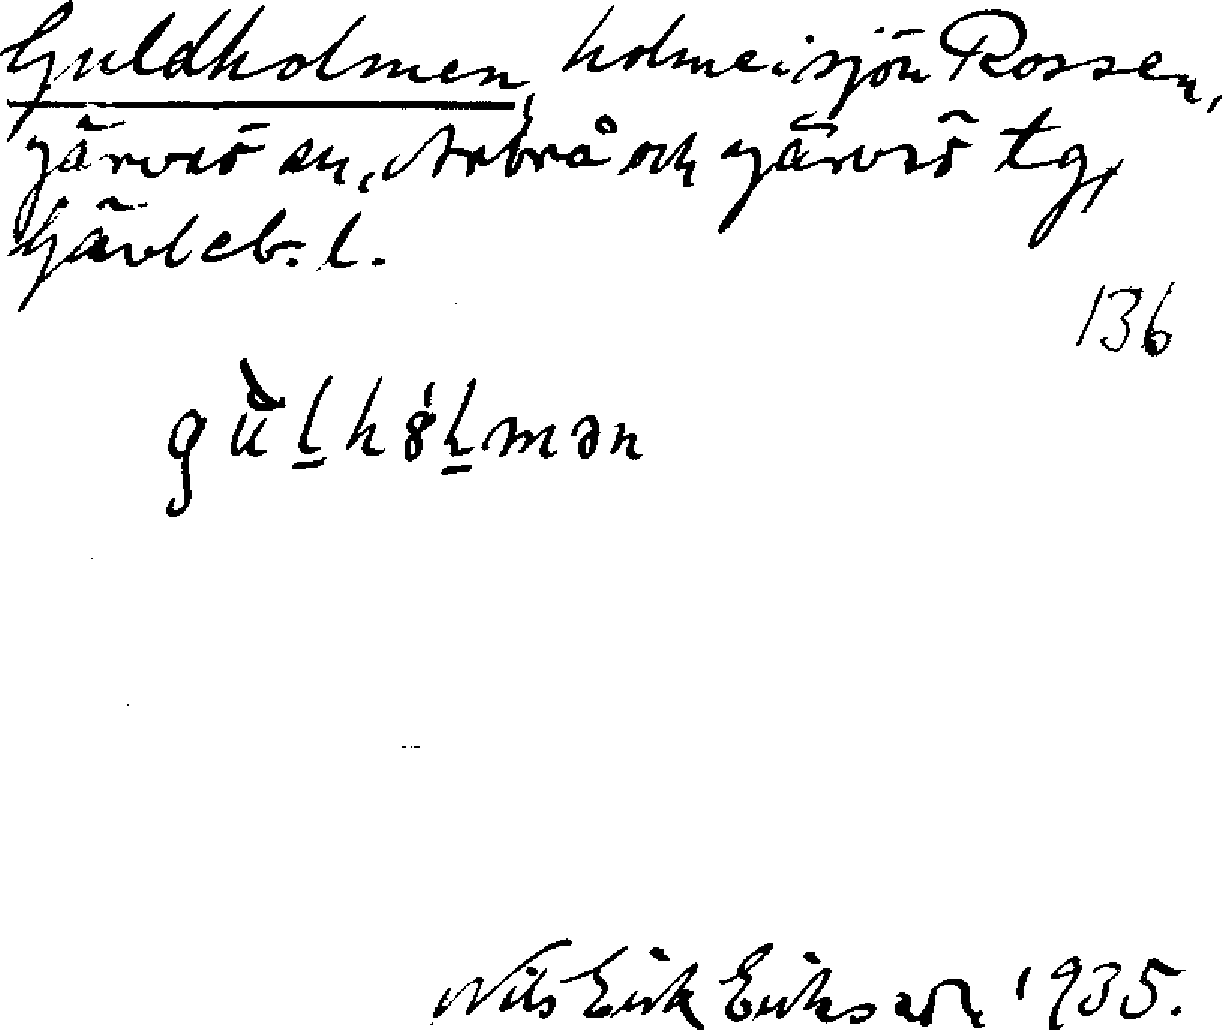 Guldholmen, holme i sjön Rossen,
Järvsö sn, Arbrå och Järvsö tg,
Gävleb. l.
136
gùl̲hól̲mən
Nils Erik Eriksson 1935.